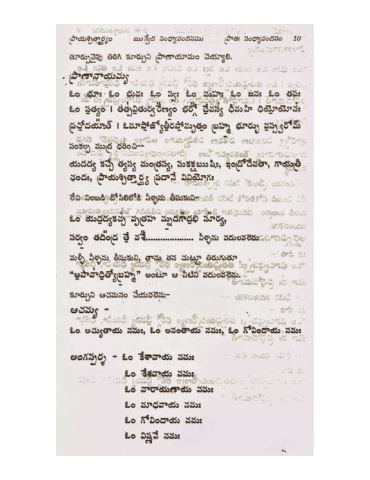 ప్రాయశ్చిత్తార్ఘ్యం ఋగ్వేద సంధ్యావందనము ప్రాతః సంధ్యావందనం 10
తూర్పువైపు తిరిగి కూర్చుని ప్రాణాయామం చేయ్యాలి.
ప్రాణానాయమ్య
ఓం భూః ఓం భువః ఓం స్వః ఓం మహః ఓం జనః ఓం తపః
ఓం సత్యం । తత్సవితుర్వరేణ్యం భర్గో దేవస్య ధీమహి ధియోయోనః
ప్రచోదయాత్ । ఓమాపోజ్యోతీరసోమృతం బ్రహ్మ భూర్భువస్సువరోమ్
సంకల్ప ముద్ర ధరించి
యదద్య కచ్చే త్యస్య మంత్రస్య, సుకక్షఋషిః, ఇంద్రోదేవతా, గాయత్రీ
ఛందః, ప్రాయశ్చిత్తార్ఘ్య ప్రదానే వినియోగః
లేచి నిలబడి దోసిలిలోకి నీళ్ళను తీసుకుని
ఓం యదద్యకచ్చ వృత్రహ న్నుదగాఅభి సూర్య,
సర్వం తదింద్ర తే వశే.................... నీళ్ళను వదులవలెను
మళ్ళీ నీళ్ళను తీసుకుని, తాను తన చుట్టూ తిరుగుతూ
“అసావాదిత్యోబ్రహ్మ” అంటూ ఆ నీటిని వదులవలెను.
కూర్చుని ఆచమనం చేయవలెను-
ఆచమ్య -
ఓం అచ్యుతాయ నమః, ఓం అనంతాయ నమః, ఓం గోవిందాయ నమః
అంగన్యాస - ఓం కేశవాయ నమః
ఓం కేశవాయ నమః
ఓం నారాయణాయ నమః
ఓం మాధవాయ నమః
ఓం గోవిందాయ నమః
ఓం విష్ణవే నమః